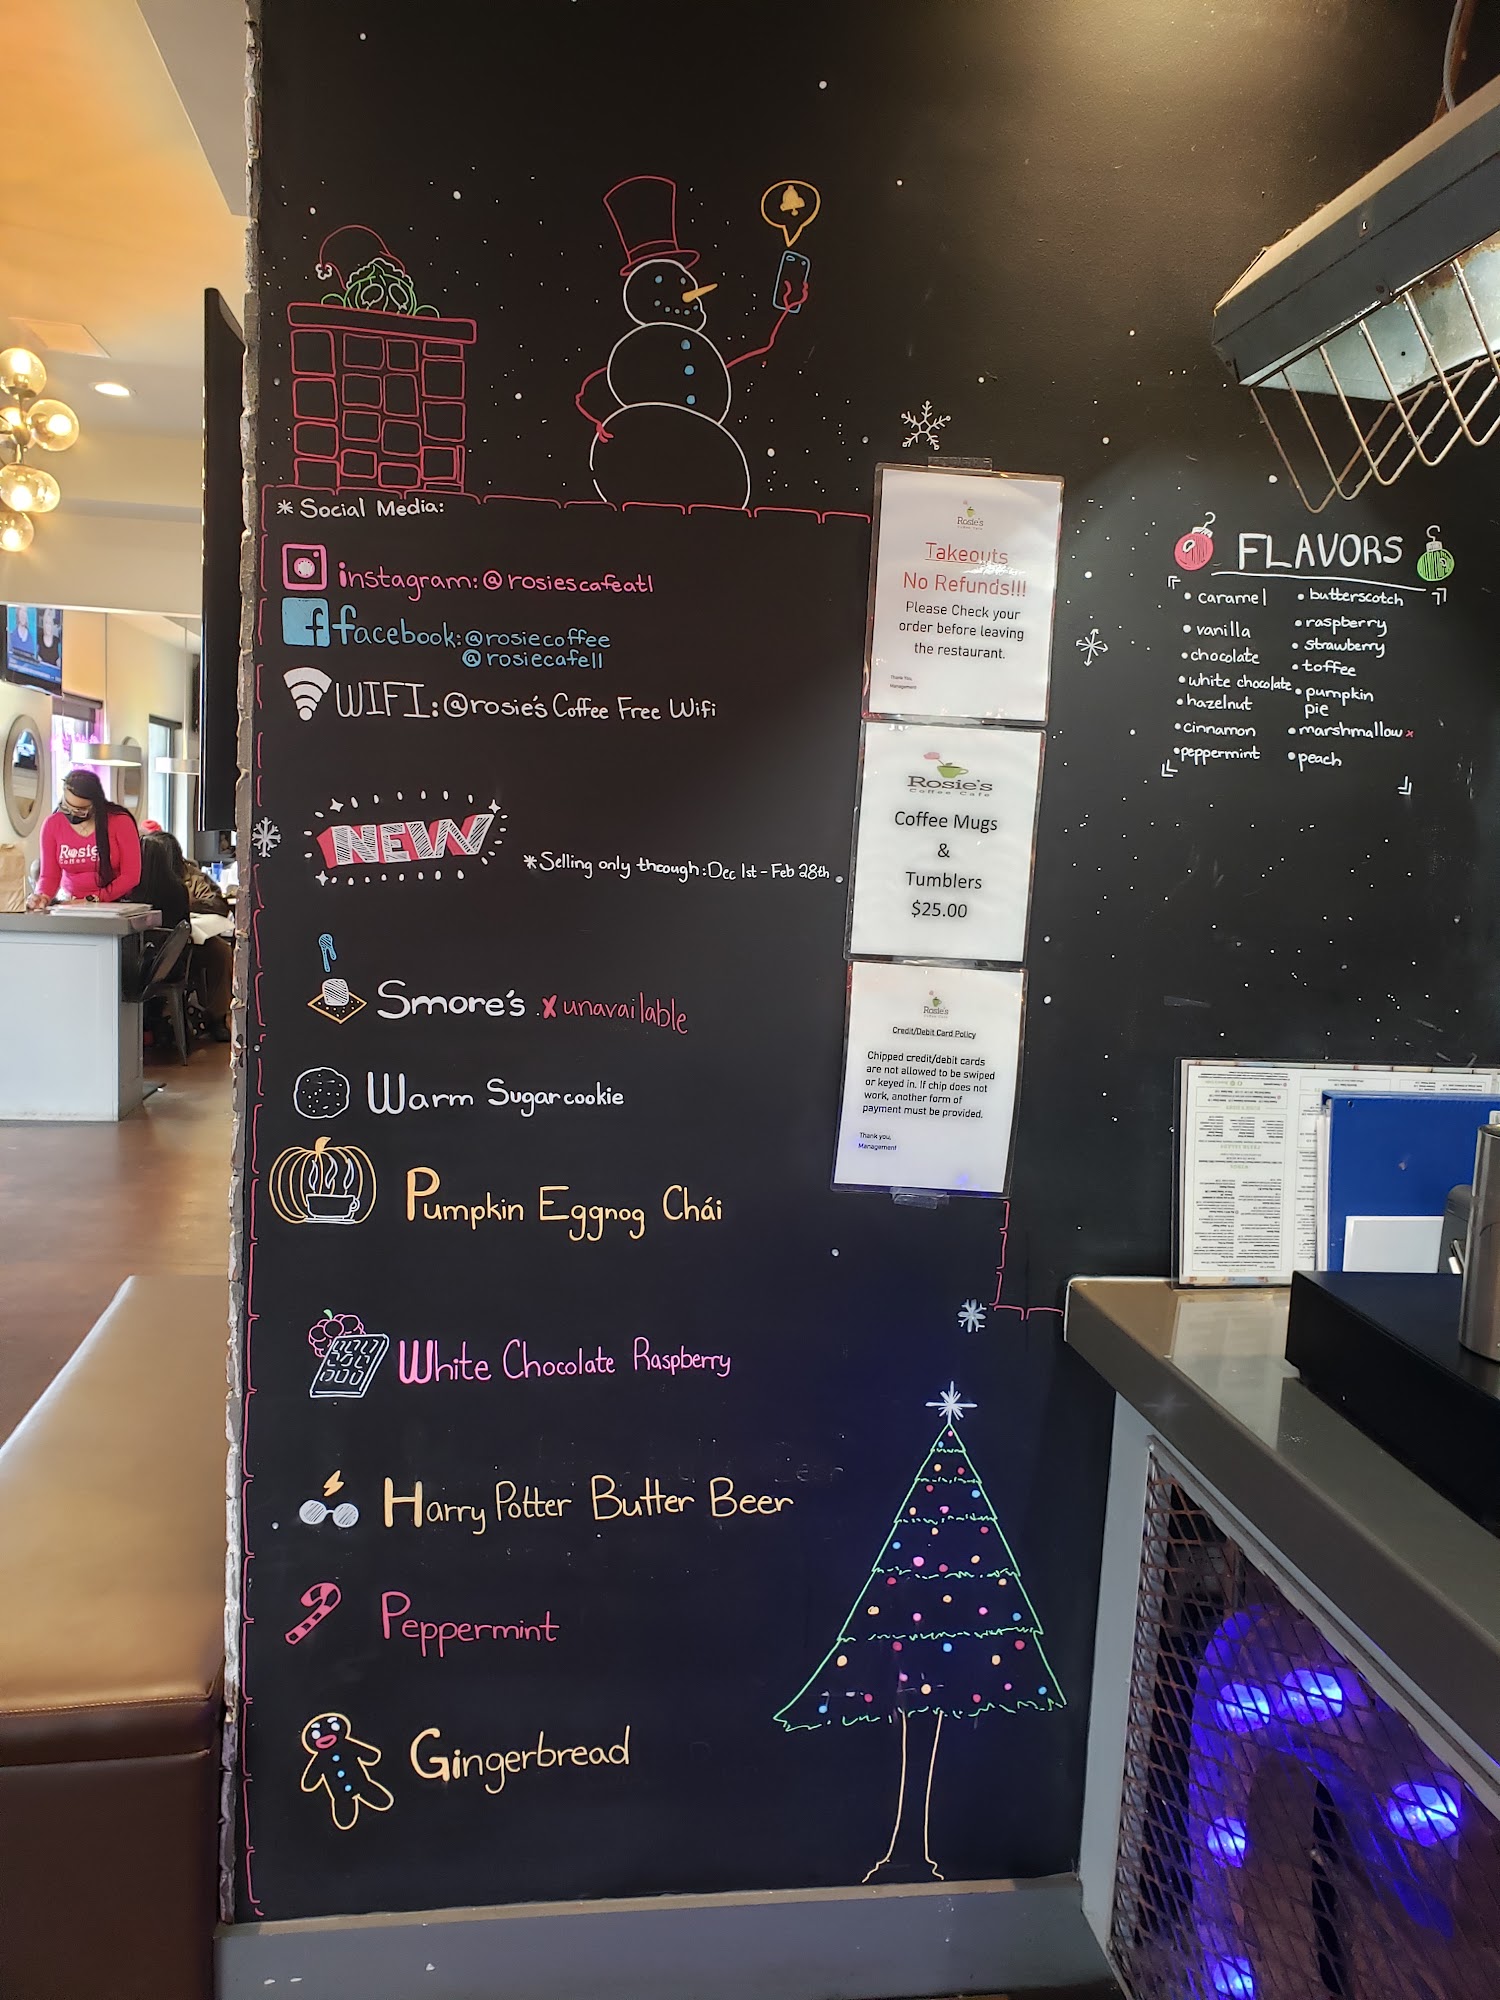 * Social Media:
instagram: @rosiescafeatl
facebook: @rosiecoffee
@rosiecafell
WIFI: @rosie's Coffee Free Wifi
NEW
*Selling only through: Dec 1st - Feb 28th
Smore's x unavailable
Warm Sugar cookie
Pumpkin Eggnog Chái
White Chocolate Raspberry
Harry Potter Butter Beer
Peppermint
Gingerbread
Rosie's
Takeouts
No Refunds!!!
Please Check your
order before leaving
the restaurant.
Thank You,
Management
Rosie's
Coffee Cafe
Coffee Mugs
&
Tumblers
$25.00
Rosie's
Credit/Debit Card Policy
Chipped credit/debit cards
are not allowed to be swiped
or keyed in. If chip does not
work, another form of
payment must be provided.
Thank you,
Management
FLAVORS
• caramel
• vanilla
• chocolate
• white chocolate
• hazelnut
• cinnamon
• peppermint
• butterscotch
• raspberry
• strawberry
• toffee
• pumpkin
pie
• marshmallow x
• peach
Rosie